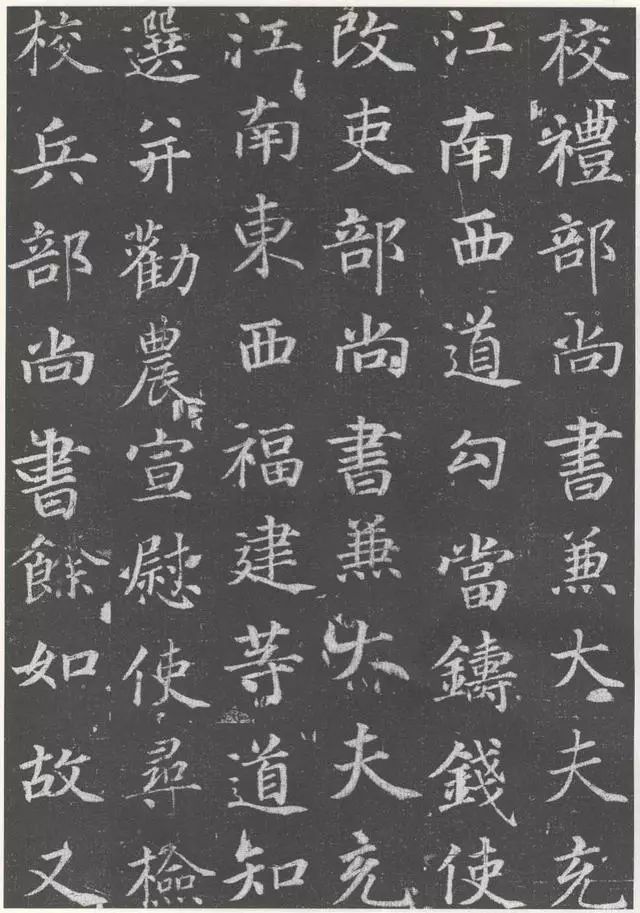 校禮部尚書兼大夫充
江南西道勾當鑄錢使
改吏部尚書兼大夫充
江南東西福建等道知
選并勸農宣慰使尋檢
校兵部尚書餘如故又